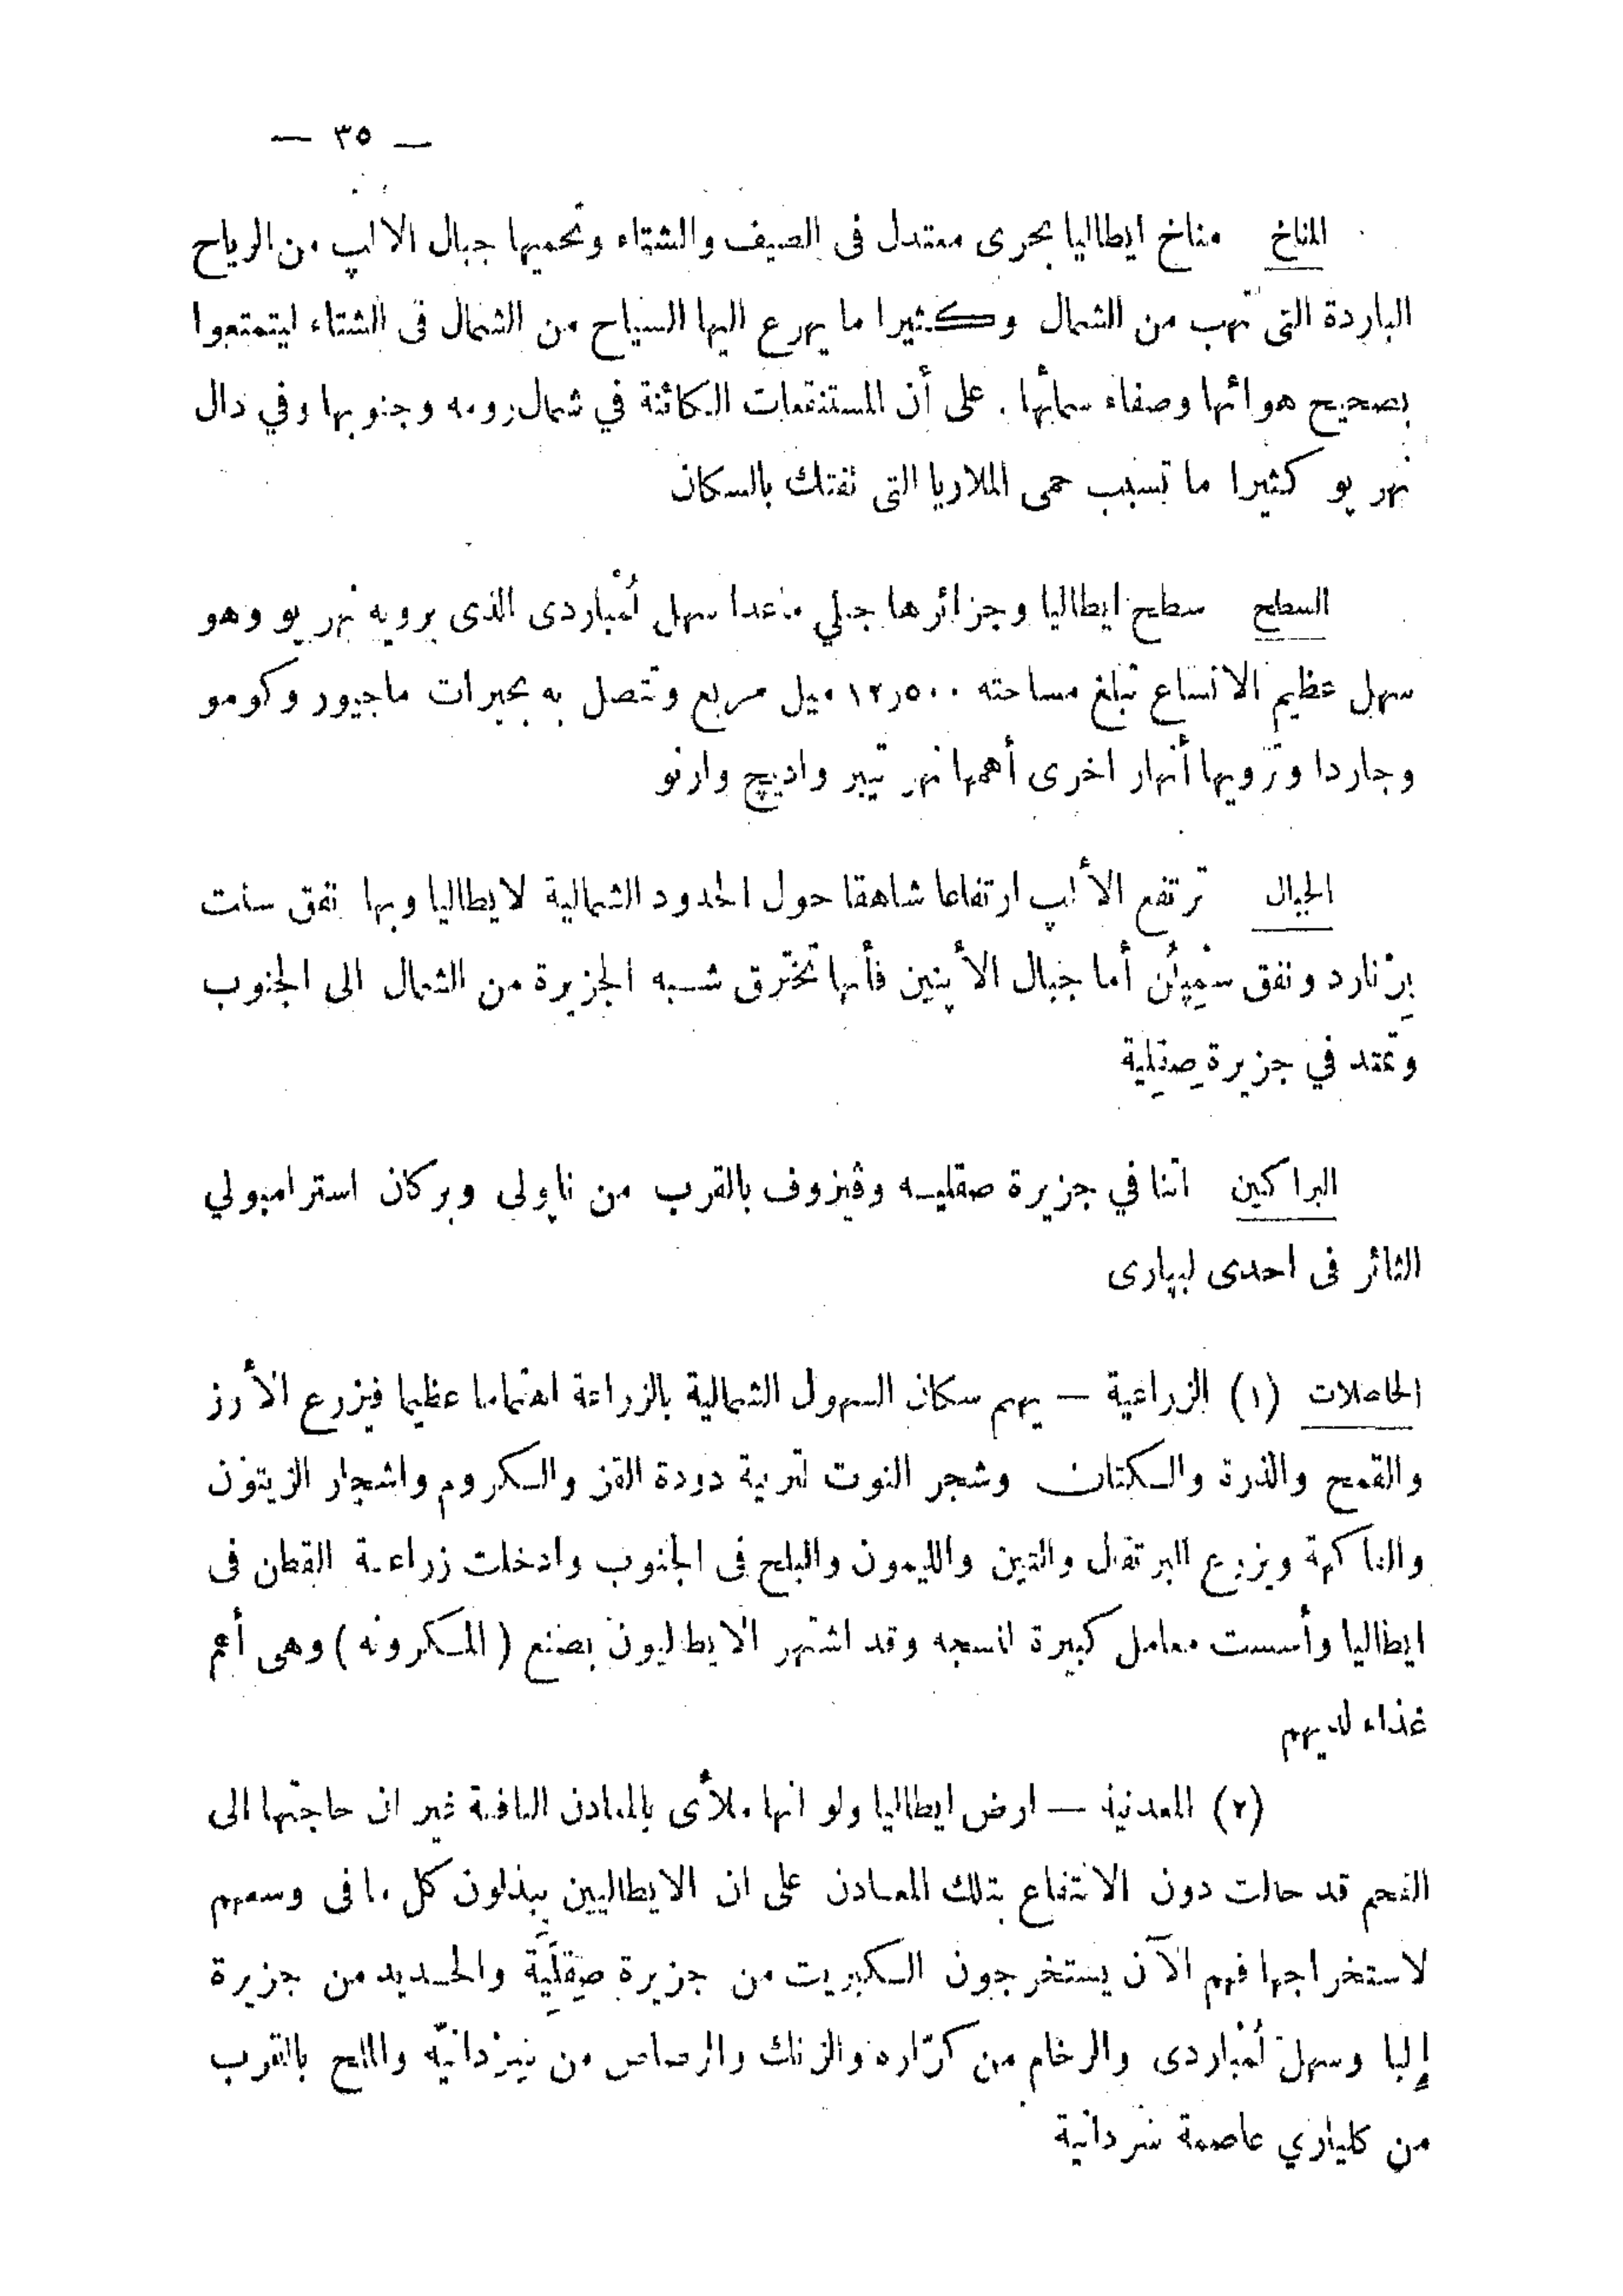 — ٣٥ —
المناخ مناخ ايطاليا بحرى معتدل فى الصيف والشتاء وتحميها جبال الالپ من الرياح
الباردة التى تهب من الشمال وكثيرا ما يهرع اليها السياح من الشمال فى الشتاء ليتمتعوا
بصحيح هوائها وصفاء سمائها . على أن المستنقعات الكائنة في شمال رومه وجنوبها وفي دال
نهر پو كثيرا ما تسبب حمى الملاريا التى تفتك بالسكان
السطح سطح ايطاليا وجزائرها جبلي ماعدا سهل لُمْباردى الذى يرويه نهر پو وهو
سهل عظيم الاتساع تبلغ مساحته ١٢٫٥٠٠ ميل مربع وتتصل به بحيرات ماجيور وكومو
وجاردا وترويها أنهار اخرى أهمها نهر تيبر واديچ وارنو
الجبال ترتفع الألپ ارتفاعا شاهقا حول الحدود الشمالية لايطاليا وبها نفق سنت
بِرْنارد ونفق سِمْپلُن أما جبال الأپنين فأنها تخترق شبه الجزيرة من الشمال الى الجنوب
وتمتد في جزيرة صِقِلية
البراكين اتنا في جزيرة صقليه وڤيزوف بالقرب من ناپولى وبركان استرامبولي
الثائر فى احدى ليپارى
الحاصلات (١) الزراعية — يهم سكان السهول الشمالية بالزراعة اهتماما عظيما فيزرع الأرز
والقمح والذرة والكتان وشجر التوت لتربية دودة القز والكروم واشجار الزيتون
والفاكهة ويزرع البرتقال والتين والليمون والبلح فى الجنوب وادخلت زراعة القطن فى
ايطاليا وأسست معامل كبيرة لنسجه وقد اشتهر الايطاليون بصنع (المكرونه) وهى أعم
غذاء لديهم
(٢) المعدنية — ارض ايطاليا ولو انها ملأى بالمعادن النافعة غير ان حاجتها الى
الفحم قد حالت دون الانتفاع بتلك المعادن على ان الايطاليين يبذلون كل ما فى وسعهم
لاستخراجها فهم الآن يستخرجون الكبريت من جزيرة صِقِلَيَّة والحديد من جزيرة
إلبا وسهل لُمْباردى والرخام من كرّاره والزنك والرصاص من والملح بالقرب
من كلياري عاصمة سردانية